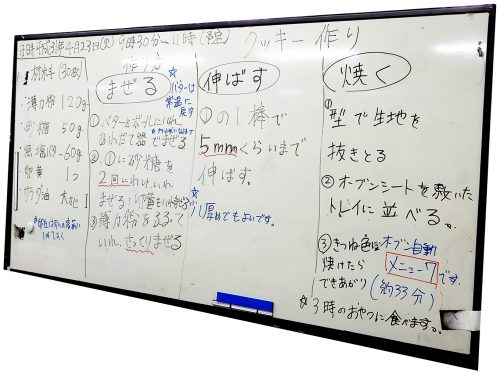 日時 平成31年4月23日(火) 9時30分〜11時(予定) クッキー作り
材料(30個)
薄力粉 120g
砂糖 50g
無塩バター 60g
卵黄 1つ
サラダ油 大さじ1
作り方
まぜる
☆バターは
常温に
戻す
①バターをボールに入れ
あわだて器でまぜる
②①に砂糖を
2回にわけ入れ
まぜる
③薄力粉をふるって
いれ、さっくりまぜる
伸ばす
①のし棒で
5mmくらいまで
伸ばす。
☆少し厚めでもよいです。
焼く
①型で生地を
抜きとる
②オーブンシートを敷いた
トレイに並べる。
③きつね色に オーブン自動
焼けたら メニュー7です。
できあがり (約33分)
☆3時のおやつに食べます。